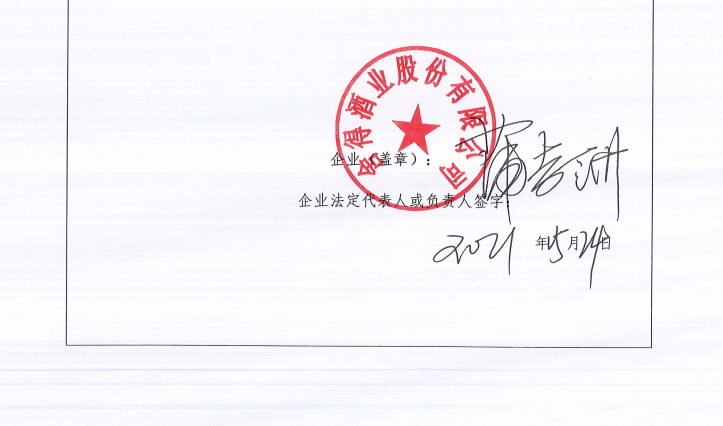 舍得酒业股份有限公司
企业（盖章）：
企业法定代表人或负责人签字：
蒲吉洲
2021 年 5 月 24 日